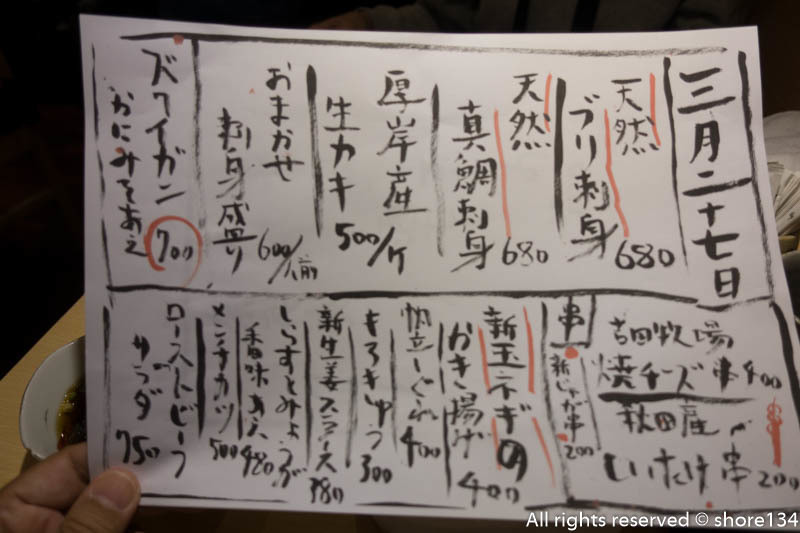 三月二十七日
天然
ブリ刺身
680
天然
真鯛刺身
680
厚岸産
生カキ
500/ケ
おまかせ
刺身盛り
600/人前
ズワイガニ
かにみそあえ
700
串
吉田牧場
焼チーズ串400
秋田産
しいたけ串
200
新じゃが串
200
新玉ネギの
かき揚げ
400
帆立しぐれ
400
きろきゅう
300
新生姜スライス
380
しらすとみょうが
香味あえ
480
メンチカツ
500
ローストビーフ
サラダ
750
All rights reserved © shore134